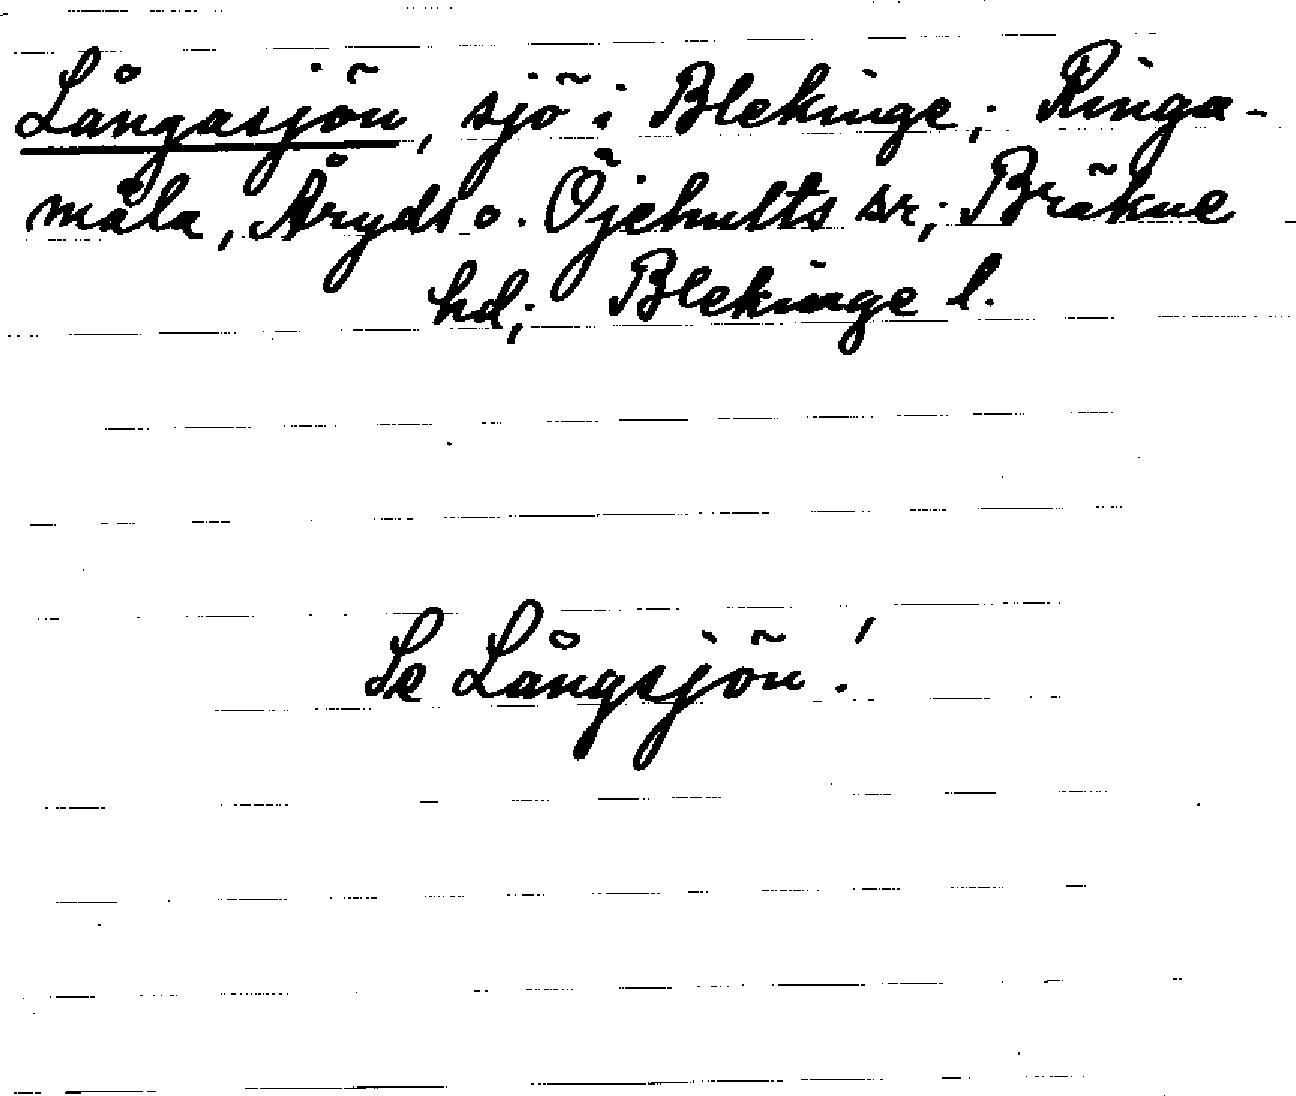 Långasjön, sjö i Blekinge; Ringa-
måla, Åryds o. Öjehults sr; Bräkne
hd; Blekinge l.
Se Långsjön!